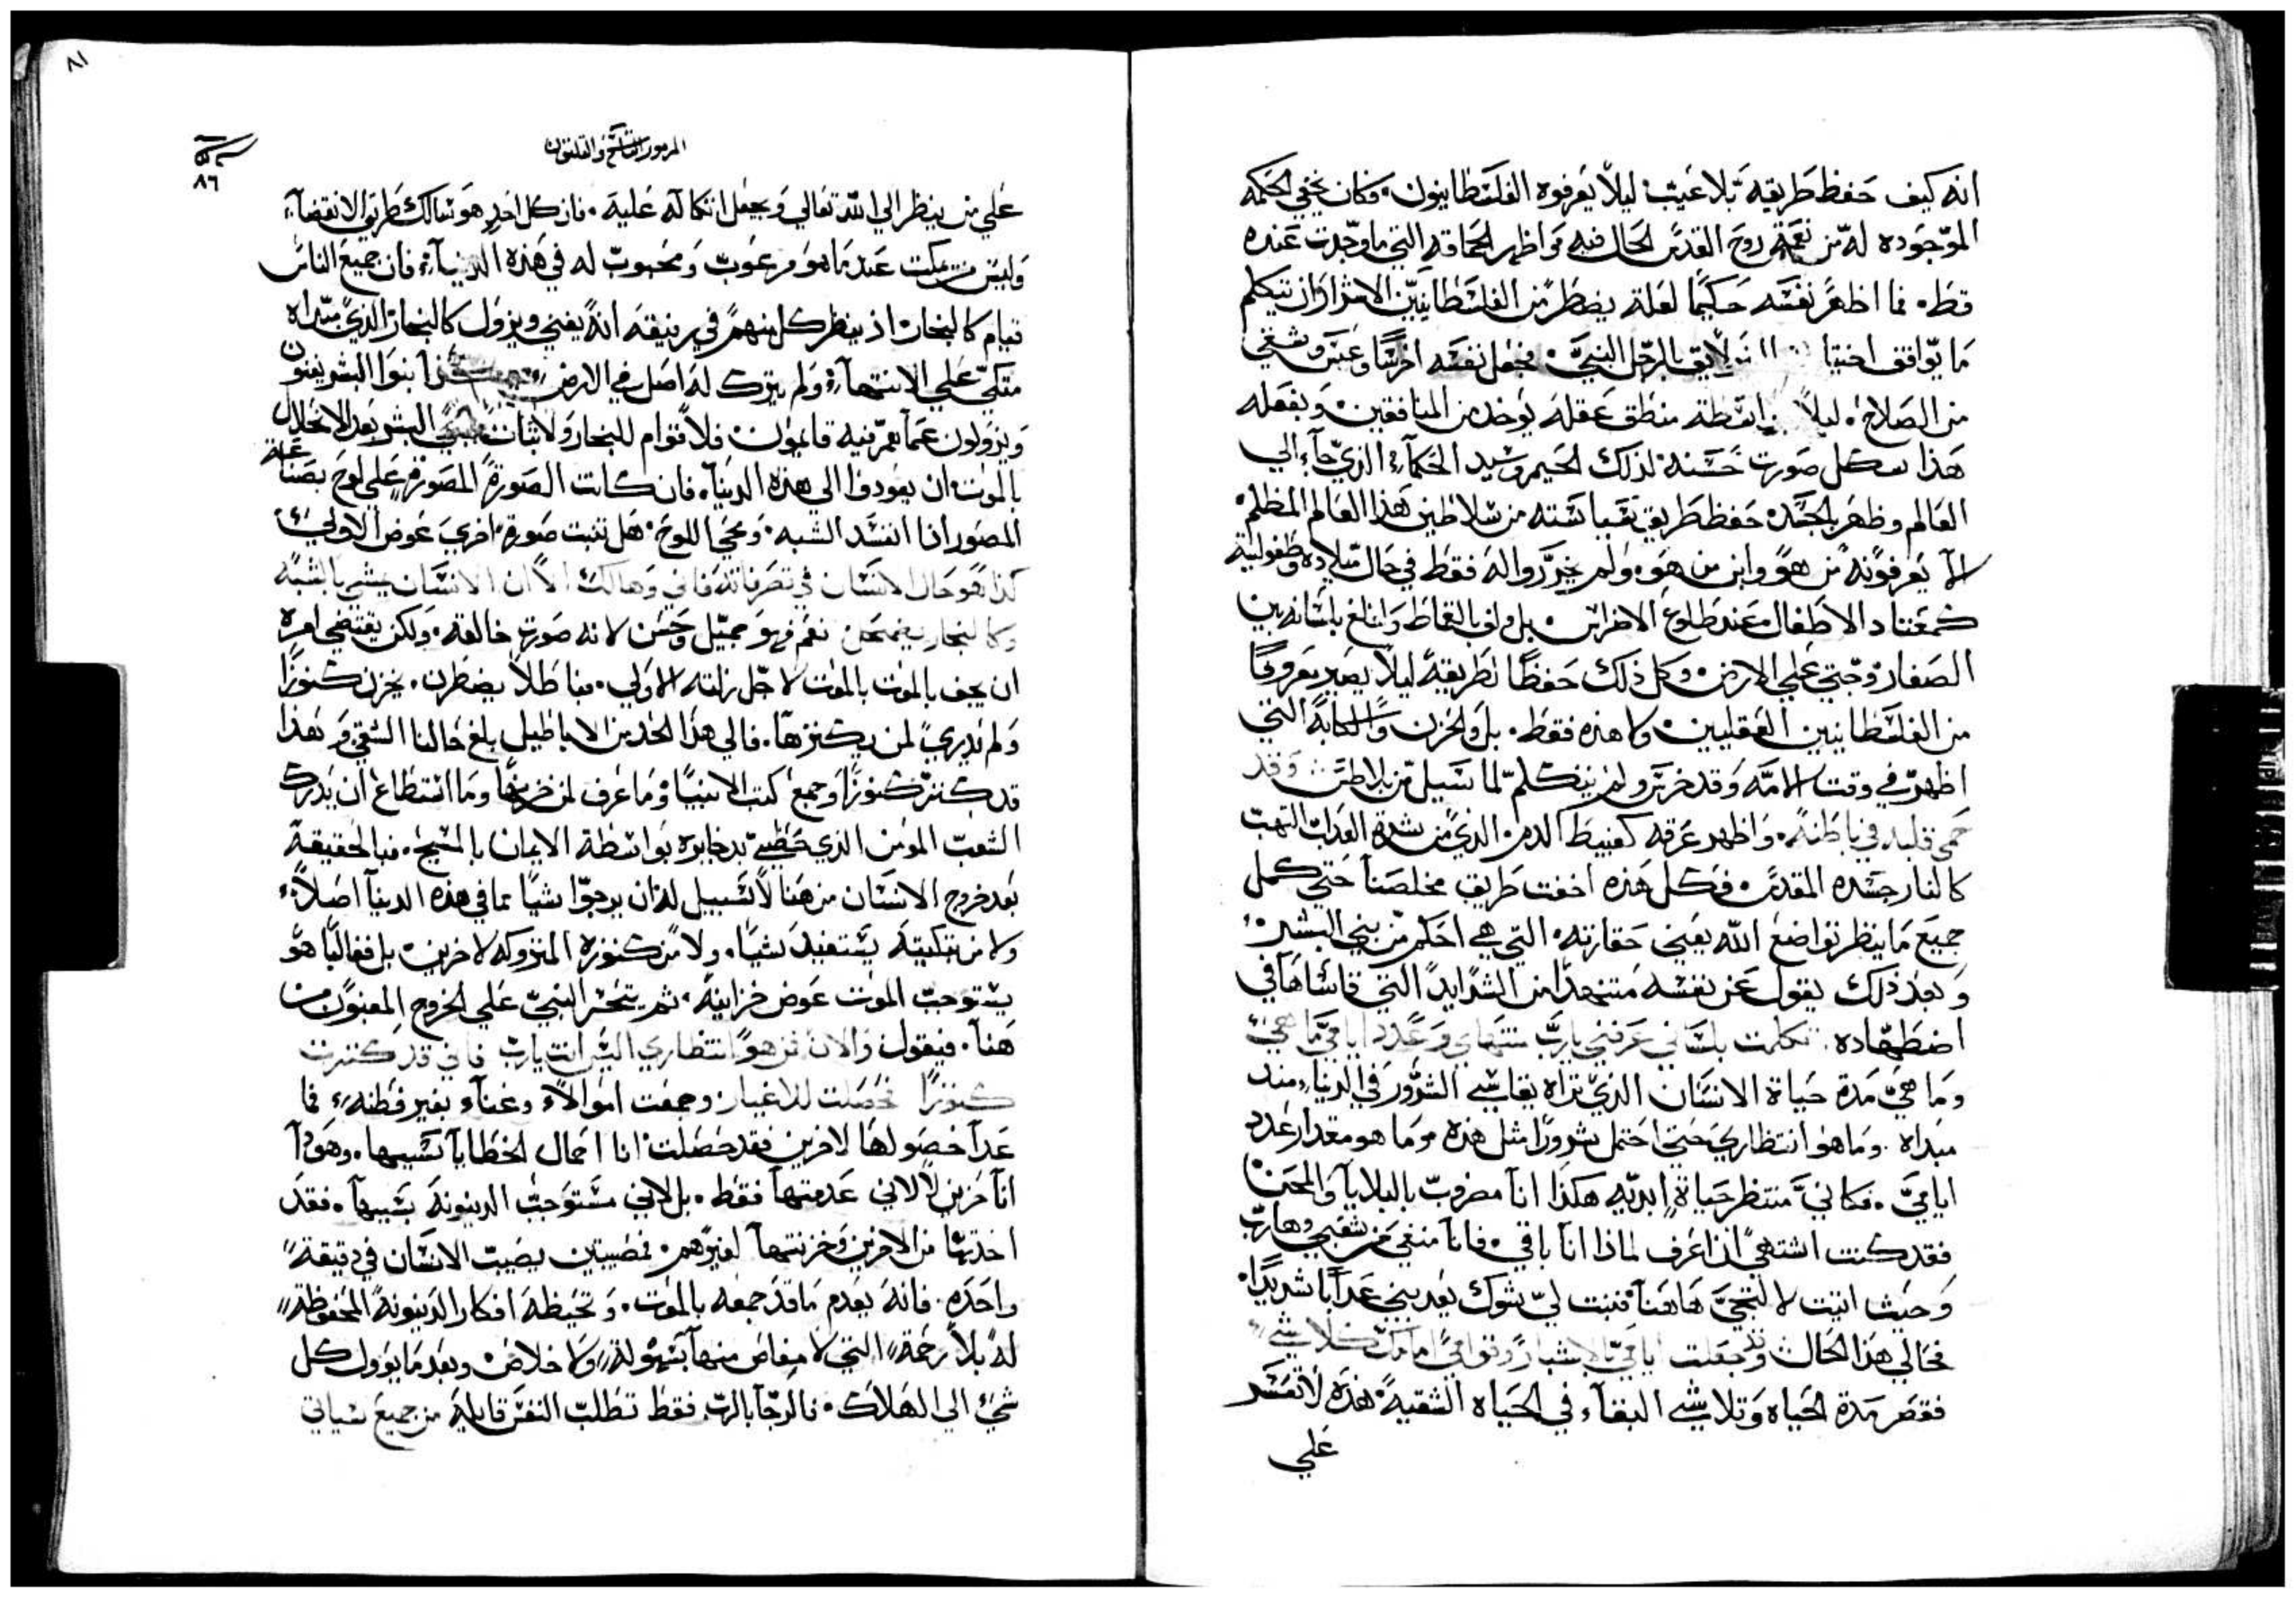 انه كيف حفظ طريقه بلا عيب ليلا يعرفوه الفلسطانيون. فكان يخفي الحكمه
الموجوده له من نعمة روح القدس الحال فيه واظهر الحماقه التي ما وجدت عنده
قط. فما اظهر نفسه حكيما لعله يضطر من الفلسطانيين الاشرار ان يتكلم
ما يوافق يليق بالرجل النبي. فجعل نفسه اخرسا وعبس وشقي
من الصلاح. ليلا بواسطة منطق عقله يوخذ من المنافقين. ويفعله
هذا بشكل صورت حسنه لذلك الحكمآء الذي جآء الي
العالم وظهر بالجسد. حفظ طريق سياسته من سلاطين هذا العالم المظلم.
لئلا يعرفونه من هو وابن من هو. ولم يحرروا له فقط في حال ميلاده وطفوليته
كمعتاد الاطفال عند طلوع الاضراس. بل ولف بالقماط وانلغ بلسانه بين
الصغار وحتي علي الارض. وكل ذلك حفظا لطريقه ليلا يصير معروفا
من الفلسطانيين العقليين. ولا هذه فقط. بل والحزن والكابة التي
اظهر في وقت الامه وقد خرس ولم يتكلم لما سيل من بيلاطس وقد
حمي قلبه في باطنه. واظهر عرقه كعبيط الدم. الذي من شدة العذاب التهب
كالنار جسده المقدس. فكل هذه اخفت طريق مخلصنا حتي كمل
جميع ما ينظر تواضع الله يعني حقارته. التي هي احكم من بني البشر.
وبعد ذلك يقول عن نفسه متنهدا من الشدايد التي قاساها في
اضطهاده. تكلمت بلساني عرفني يارب منتهاي وعدد ايامي ما هي
وما هي مدة حياة الانسان الذي نراه يقاسي الشرور في الدنيا منذ
مبداه. وما هو انتظاري حتي احتمل شرورا مثل هذه وما هو مقدار عدد
ايامي. فكاني منتظر حياة ابديه هكذا انا مضروب بالبلايا والمحن
فقد كنت اشتهي ان اعرف لماذا انا باقي. فانا منفي من شعبي وهارب
وحيث اتيت لالتجي هاهنا فنبت لي شوك يعذبني عذابا شديدا.
فحالي هذا الحال وقد جعلت ايامي بالاشبار وقوامي امامك كلا شي
فقصر مدة الحياه وتلاشي البقآء في الحياه الشقيه. هذه لا تعسر
علي
٨١
المزمور التاسع والثلثون
٨٦
علي من ينظر الي الله تعالي ويجعل اتكاله عليه. فان كل احد هو سالك طريق الانقضآء
وليس من يمكث عند ما هو مرغوب ومحبوب له في هذه الدنيا. فان جميع الناس
قيام كالبخار اذ ينظر كل منهم في رفيقه انه يفني ويزول كالبخار الذي مبداه
متكي علي الانتهآء. ولم يترك له اصل في الارض ابنوا البشر يفنون
ويزولون عما هم فيه قايمون. فلا قوام للبخار ولا ثبات لبني البشر بعد الانحلال
بالموت ان يعودوا الي هذه الدنيا. فان كانت الصورة المصورة علي لوح بصناعة
المصور اذا انفسد الشبه. ومحي اللوح. هل تثبت صورة اخري عوض الاولي
كذا هو حال الانسان في تصرفاته فاني وهالك الا ان الانسان يمشي بالشبه
وكالبخار يضمحل نعم فهو مميل وحسن لانه صورت خالقه. ولكن يقتضي امره
ان يجف بالموت بالموت لاجل زلته الاولي. فباطلا يضطرب. يخزن كنوزا
ولم يدري لمن يكنزها. فالي هذا الحد من الاباطيل بلغ حالنا الشقي وبهذا
قد كنز كنوزا وجميع كتب الانبيا وما عرف لمن خزنها وما استطاع ان يدرك
الشعب المومن الذي حظي بذخايره بواسطة الايمان بالمسيح. فبالحقيقة
بعد خروج الانسان من هنا لا سبيل له ان يرجوا شيا مما في هذه الدنيآ اصلا
ولا من تنكيته يستفيد شيا. ولا من كنوزه المتروكه لاخرين. بل فغالبا هو
يستوجب الموت عوض خزاينه. ثم يتحسر النبي علي الخروج المغبون من
هنا. فيقول والان من هو انتظاري اليس انت يارب فاني قد كنزت
كنوزا فحصلت للاغيار وجمعت اموالا وغنآء بغير فطنة. فما
عدا حصولها لاخرين فقد حصلت انا احمال الخطايا بسببها. وهوذا
انا حزين لا لاني عدمتها فقط. بل لاني مستوجب الدينونة بسببها. فقد
اخذتها من الاخرين وخزنتها لغيرهم. فمصيبتين يصيب الانسان في دقيقة
واحده. فانه يعدم ما قد جمعه بالموت. وتحيطه افكار الدينونة المحفوظة
له بلا رحمة التي لا مناص منها بسهولة ولا خلاص وبعد ما يوول كل
شي الي الهلاك. فالرجا بالرب فقط تطلب النفس قايله من جميع سياتي